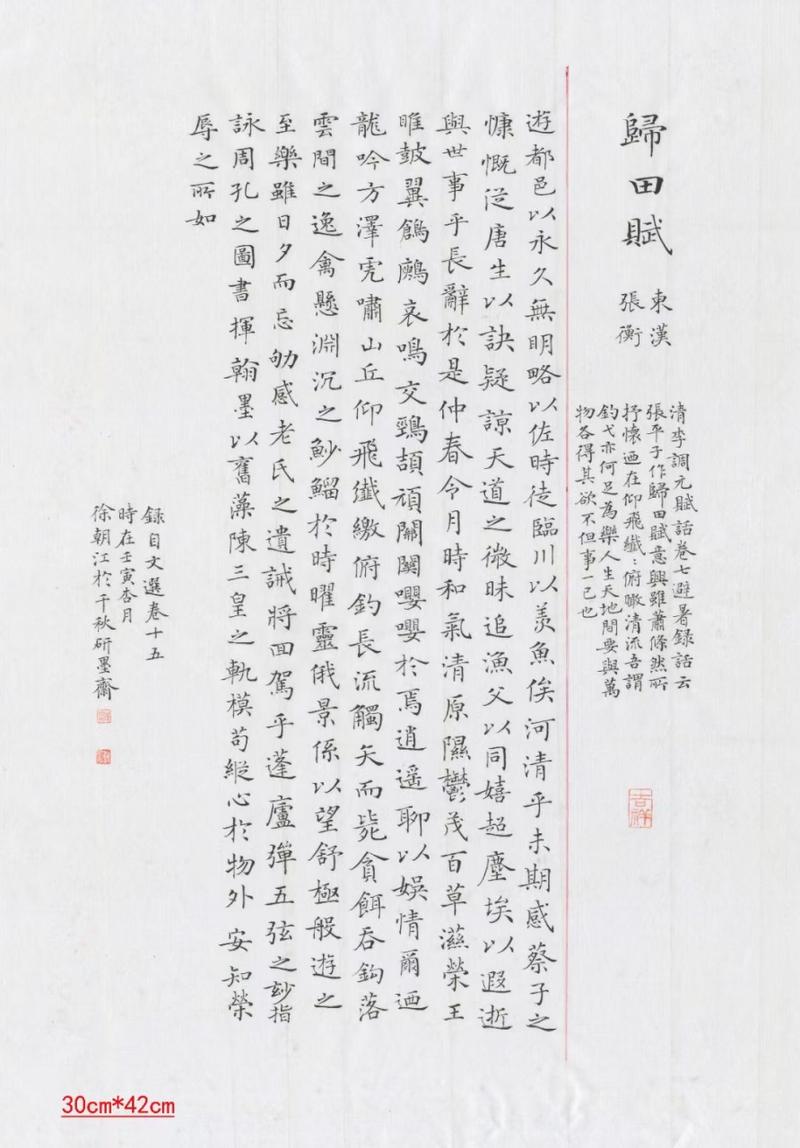 歸田賦
東漢
張衡
清李調元賦話卷七避暑録話云
張平子作歸田賦意興雖蕭條然所
抒懷迺在仰飛纖：俯瞰清流吾謂
釣弋亦何足為樂人生天地間要與萬
物各得其欲不但事一己也
吉祥
遊都邑以永久無明略以佐時徒臨川以羨魚俟河清乎未期感蔡子之
慷慨從唐生以訣疑諒天道之微昧追漁父以同嬉超塵埃以遐逝
與世事乎長辭於是仲春令月時和氣清原隰鬱茂百草滋榮王
雎鼓翼鶬鶊哀鳴交頸頡頏關關嚶嚶於焉逍遥聊以娛情爾迺
龍吟方澤虎嘯山丘仰飛纖繳俯釣長流觸矢而斃貪餌吞鉤落
雲間之逸禽懸淵沉之魦鰡於時曜靈俄景係以望舒極般遊之
至樂雖日夕而忘劬感老氏之遺誡將迴駕乎蓬廬彈五弦之妙指
詠周孔之圖書揮翰墨以奮藻陳三皇之軌模苟縱心於物外安知榮
辱之所如
録自文選卷十五
時在壬寅杏月
徐朝江於千秋研墨齋
30cm*42cm